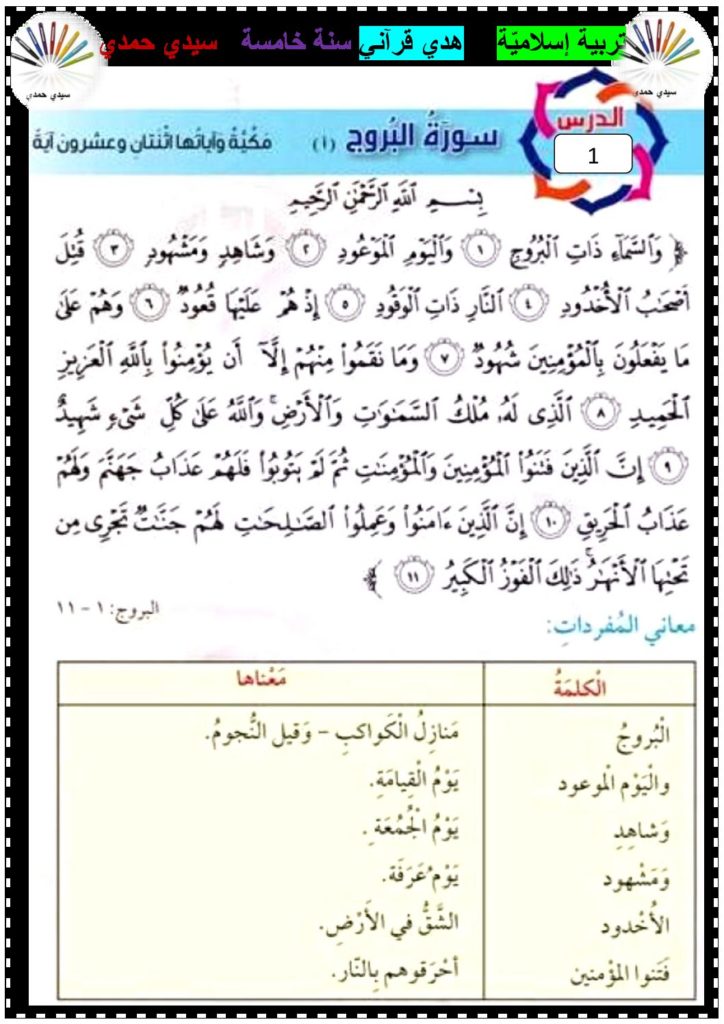 تربية إسلاميّة هدي قرآني سنة خامسة سيدي حمدي
سيدي حمدي
سيدي حمدي
الدرس
1
سورَةُ البُروجِ (١) مَكّيَّةٌ وَآياتُها اثْنَتانِ وعشرون آيَةً
بِسْمِ ٱللَّهِ ٱلرَّحْمَٰنِ ٱلرَّحِيمِ
﴿ وَٱلسَّمَآءِ ذَاتِ ٱلْبُرُوجِ ١ وَٱلْيَوْمِ ٱلْمَوْعُودِ ٢ وَشَاهِدٍ وَمَشْهُودٍ ٣ قُتِلَ
أَصْحَٰبُ ٱلْأُخْدُودِ ٤ ٱلنَّارِ ذَاتِ ٱلْوَقُودِ ٥ إِذْ هُمْ عَلَيْهَا قُعُودٌ ٦ وَهُمْ عَلَىٰ
مَا يَفْعَلُونَ بِٱلْمُؤْمِنِينَ شُهُودٌ ٧ وَمَا نَقَمُواْ مِنْهُمْ إِلَّآ أَن يُؤْمِنُواْ بِٱللَّهِ ٱلْعَزِيزِ
ٱلْحَمِيدِ ٨ ٱلَّذِى لَهُۥ مُلْكُ ٱلسَّمَٰوَٰتِ وَٱلْأَرْضِ ۚ وَٱللَّهُ عَلَىٰ كُلِّ شَىْءٍ شَهِيدٌ
٩ إِنَّ ٱلَّذِينَ فَتَنُواْ ٱلْمُؤْمِنِينَ وَٱلْمُؤْمِنَٰتِ ثُمَّ لَمْ يَتُوبُواْ فَلَهُمْ عَذَابُ جَهَنَّمَ وَلَهُمْ
عَذَابُ ٱلْحَرِيقِ ١٠ إِنَّ ٱلَّذِينَ ءَامَنُواْ وَعَمِلُواْ ٱلصَّٰلِحَٰتِ لَهُمْ جَنَّٰتٌ تَجْرِى مِن
تَحْتِهَا ٱلْأَنْهَٰرُ ۚ ذَٰلِكَ ٱلْفَوْزُ ٱلْكَبِيرُ ١١ ﴾
البروج: ١ - ١١
معاني المُفرداتِ:
الْكلمَةُ مَعْناها
الْبُروجُ مَنازِلُ الْكَواكبِ - وَقيل النُّجومُ.
والْيَوْم الْموعود يَوْمُ الْقِيامَةِ.
وَشاهِدِ يَوْمُ الْجُمُعَةِ.
وَمَشْهود يَوْمُ عَرَفَة.
الأُخْدود الشَّقُّ في الأَرْضِ.
فَتَنوا المُؤْمنين أحْرَقوهم بِالنّار.